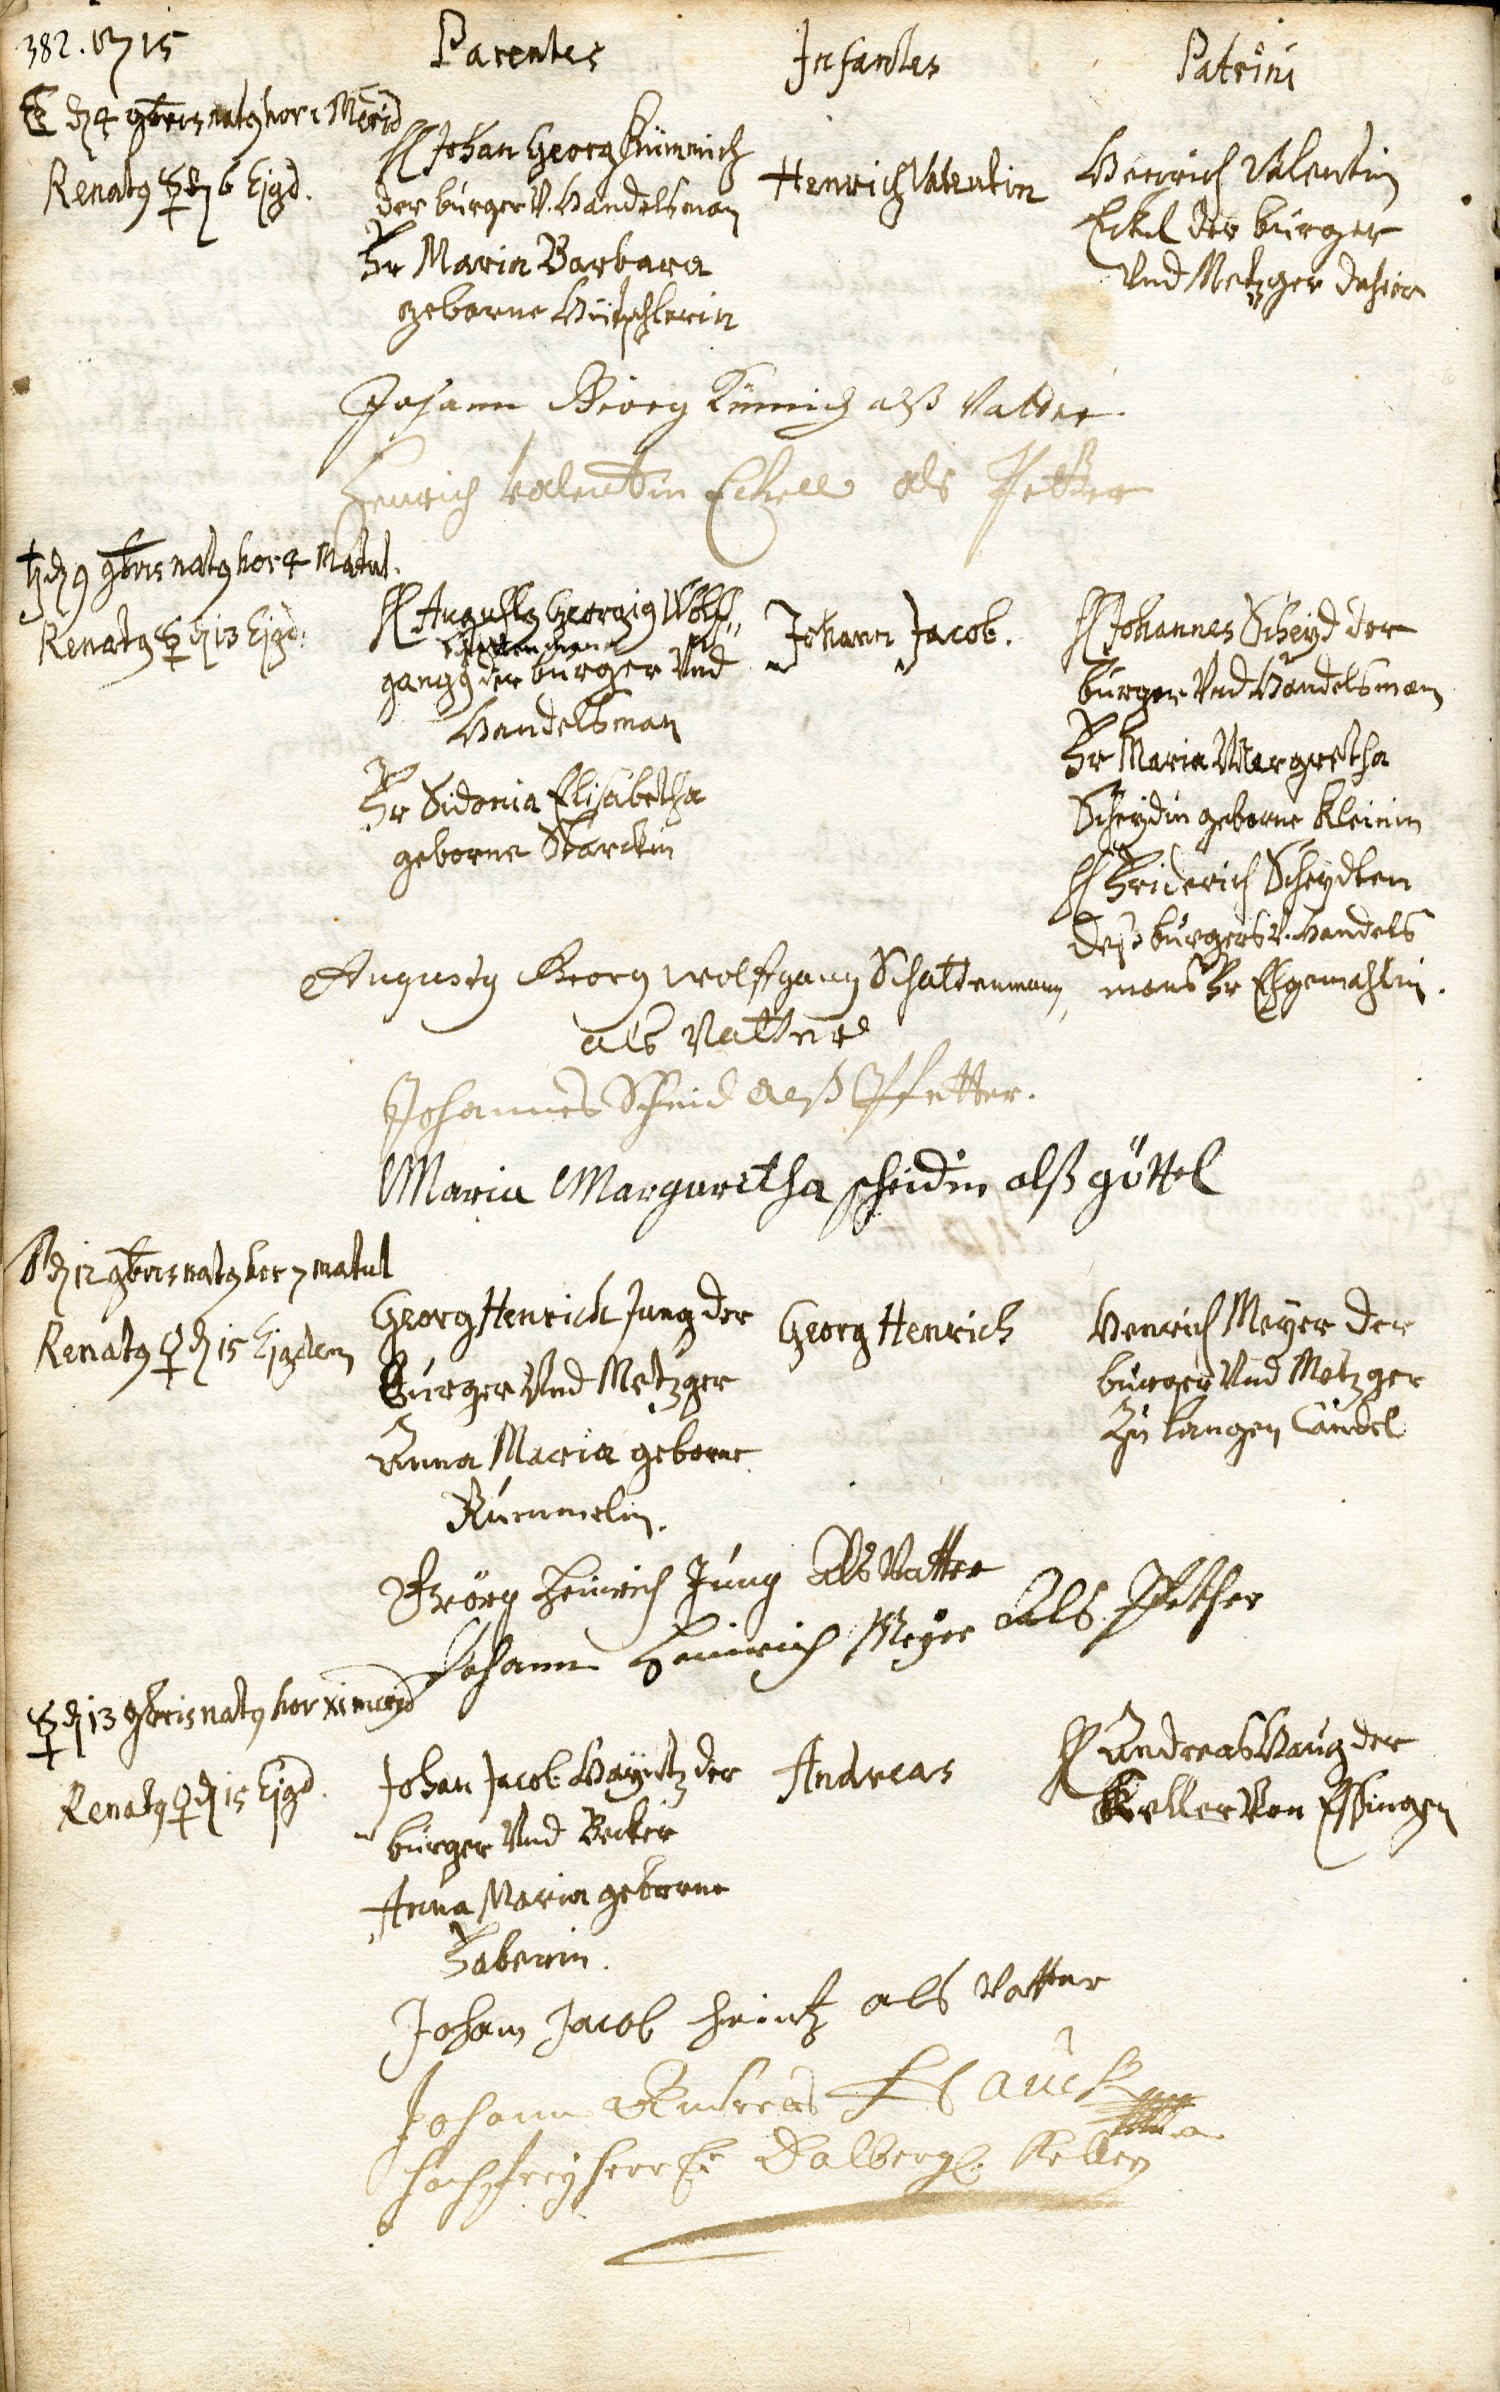 382. 1715
Parentes
Infantes
Patrini
d 4 9bris natq hor 1 Merid
Renatq ☿ d 6 Ejqd.
H Johan Georg Kümmich
der burger V. Handelsman
Fr Maria Barbara
geborne Hütschlerin
Henrich Valentin
Henrich Valentin
Eckel der burger
Vnd Metzger dahier
Johann Georg Kümich alß Vatter.
Henrich Valentin Eckell als Petter
♄ d 9 9bris natq hor 4 Matut.
Renatq ☿ d 13 Ejqd.
H Augustq Georgiq Wolff„
gangq der burger Vnd
Handelsman
Fr Sidonia Elisabetha
geborne Starckin
Johann Jacob.
H Johannes Scheyd der
burger Vnd Handelsman
Fr Maria Margretha
Scheydin geborne Kleinin
H Friderich Scheydten
deß burgers V. Handels
mans Fr Ehgemahlin.
Augustq Georg Wolffgang Schattenmann
als Vatter
Johannes Scheid alß Pfetter.
Maria Margaretha scheidin alß göttel
d 12 9bris natq hor 7 matut
Renatq ♀ d 15 Ejqdem
Georg Henrich Jung der
Burger Vnd Metzger
Anna Maria geborne
Kümmelin.
Georg Henrich
Henrich Meyer der
burger Vnd Metzger
Zu Langen Candel
Georg Heinrich Jung Als Vatter
Johann Heinrich Meyer Als Pfether
☿ d 13 9bris natq hor xi merid
Renatq ♀ d 15 Ejqd.
Johan Jacob Hayntz der
burger Vnd Becker
Anna Maria geborne
Faberin.
Andreas
H Andreas Haug der
Keller Von Essingen
Johann Jacob heintz als Vatter
Johann Andreas Hauck
hochfreyherrl. Dalbergl. Keller